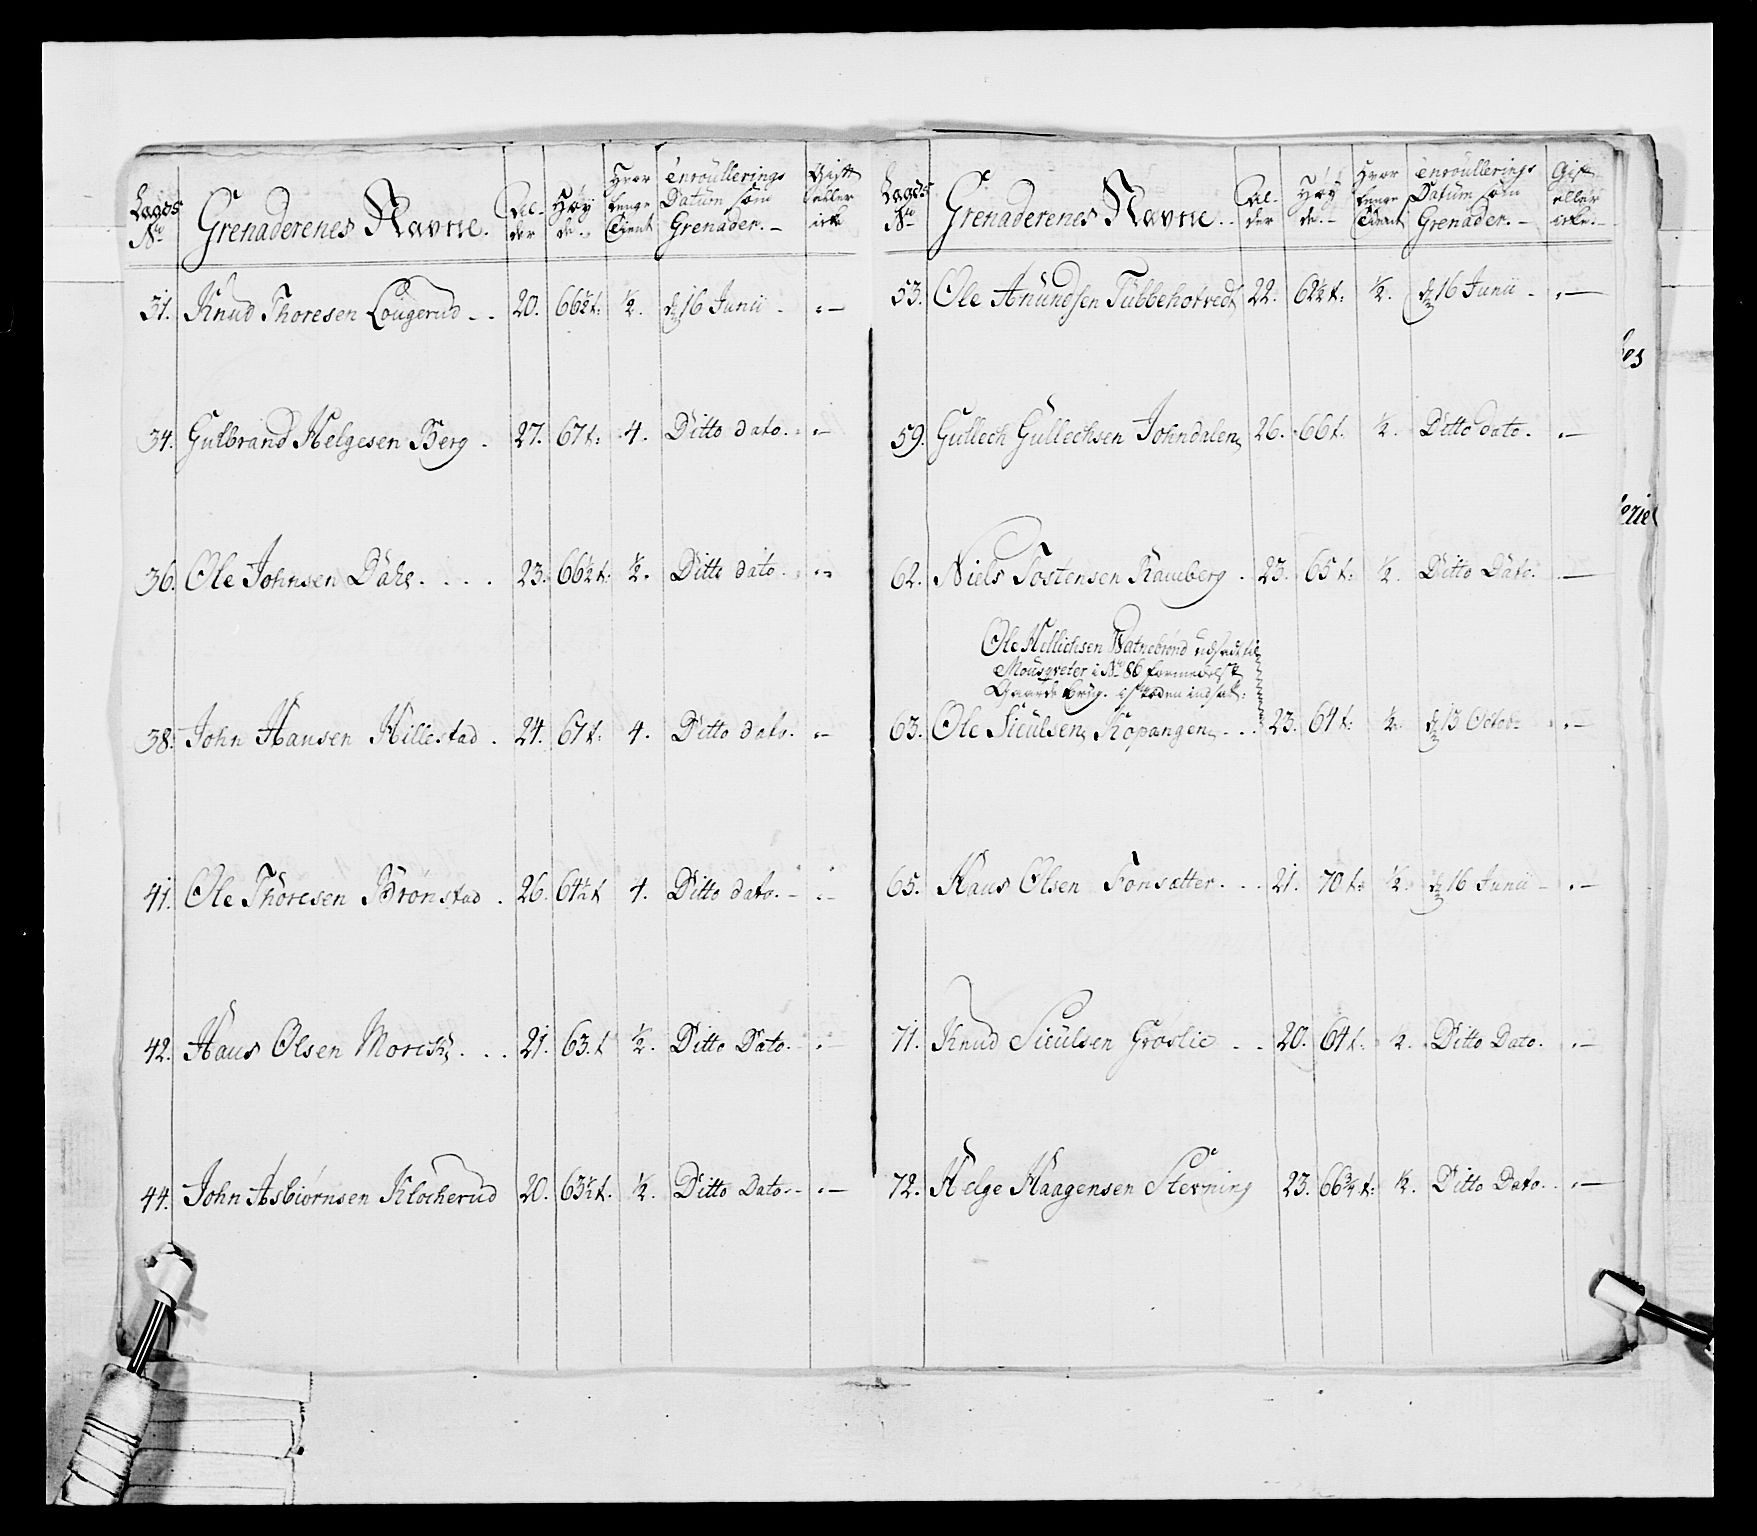 Lagds No | Grenaderenes Navne. | Al- der | Høy de. | Hvor lenge Tient | Enroullerings Datum som Grenader. | Gift eller icke
31. Knud Thoresen Lougerud | 20. | 66½ t: | ½. | d 16 Junii | -
34. Gulbrand Helgesen Berg. | 27. | 67 t: | 4. | Ditto dato. | -
36. Ole Johnsen Dahl. | 23. | 66½ t: | ½. | Ditto dato. | -
38. John Hansen Hillestad. | 24. | 67 t: | 4. | Ditto dato. | -
41. Ole Thoresen Brønstad. | 26. | 64½ t | 4. | Ditto dato. | -
42. Hans Olsen | 21. | 63. t | ½. | Ditto Dato. | -
44. John Asbiørnsen Klocherud | 20. | 63½ t. | ½. | Ditto Dato. | -
Lagds No | Grenaderenes Navne. | Al- der | Høy de. | Hvor lenge Tient | Enroullerings Datum som Grenader. | Gift eller icke.
53. Ole Anundsen Tubbehotvedt | 22. | 62½ t: | ½. | d 16 Junii | -
59. Gullech Gullechsen Johndalen | 26. | 66 t. | ½. | Ditto dato. | -
62. Niels Tostensen Ramberg. | 23. | 65 t: | ½. | Ditto Dato. | -
Ole Hellichsen Watnebrønd udsadt til
Mousqveter i No 86 formedelst
Gaarde brug. i steden indsat:
63. Ole Siçulsen Kopangen | 23. | 64 t: | ½. | d 13 Octobr | -
65. Hans Olsen Fonsætter. | 21. | 70 t: | ½. | d 16 Junii | -
71. Knud Siculsen Groslie | 20. | 64 t: | ½. | Ditto Dato. | -
72. Helge Haagensen Stevning | 23. | 66¾ t: | ½. | Ditto Dato. | -